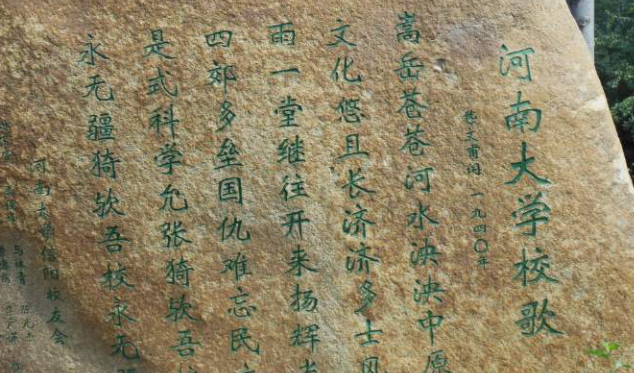 河南大学校歌
嵇文甫词 一九四〇年
嵩岳苍苍河水泱泱中原
文化悠且长济济多士风
雨一堂继往开来扬辉
四郊多垒国仇难忘民
是式科学允张猗欤吾
永无疆猗欤吾校永无
河南大学信阳校友会